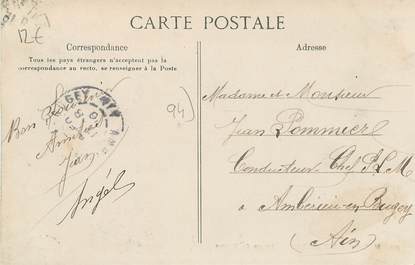 CARTE POSTALE
12€
Correspondance
Tous les pays étrangers n'acceptent pas la
correspondance au recto, se renseigner à la Poste
Bon Souvenir
Amitiés
Jean
Angèle
94)
Adresse
Madame et Monsieur
Jean Pommier
Conducteur Chef P.L.M
à Ambérieu en Bugey
(Ain)